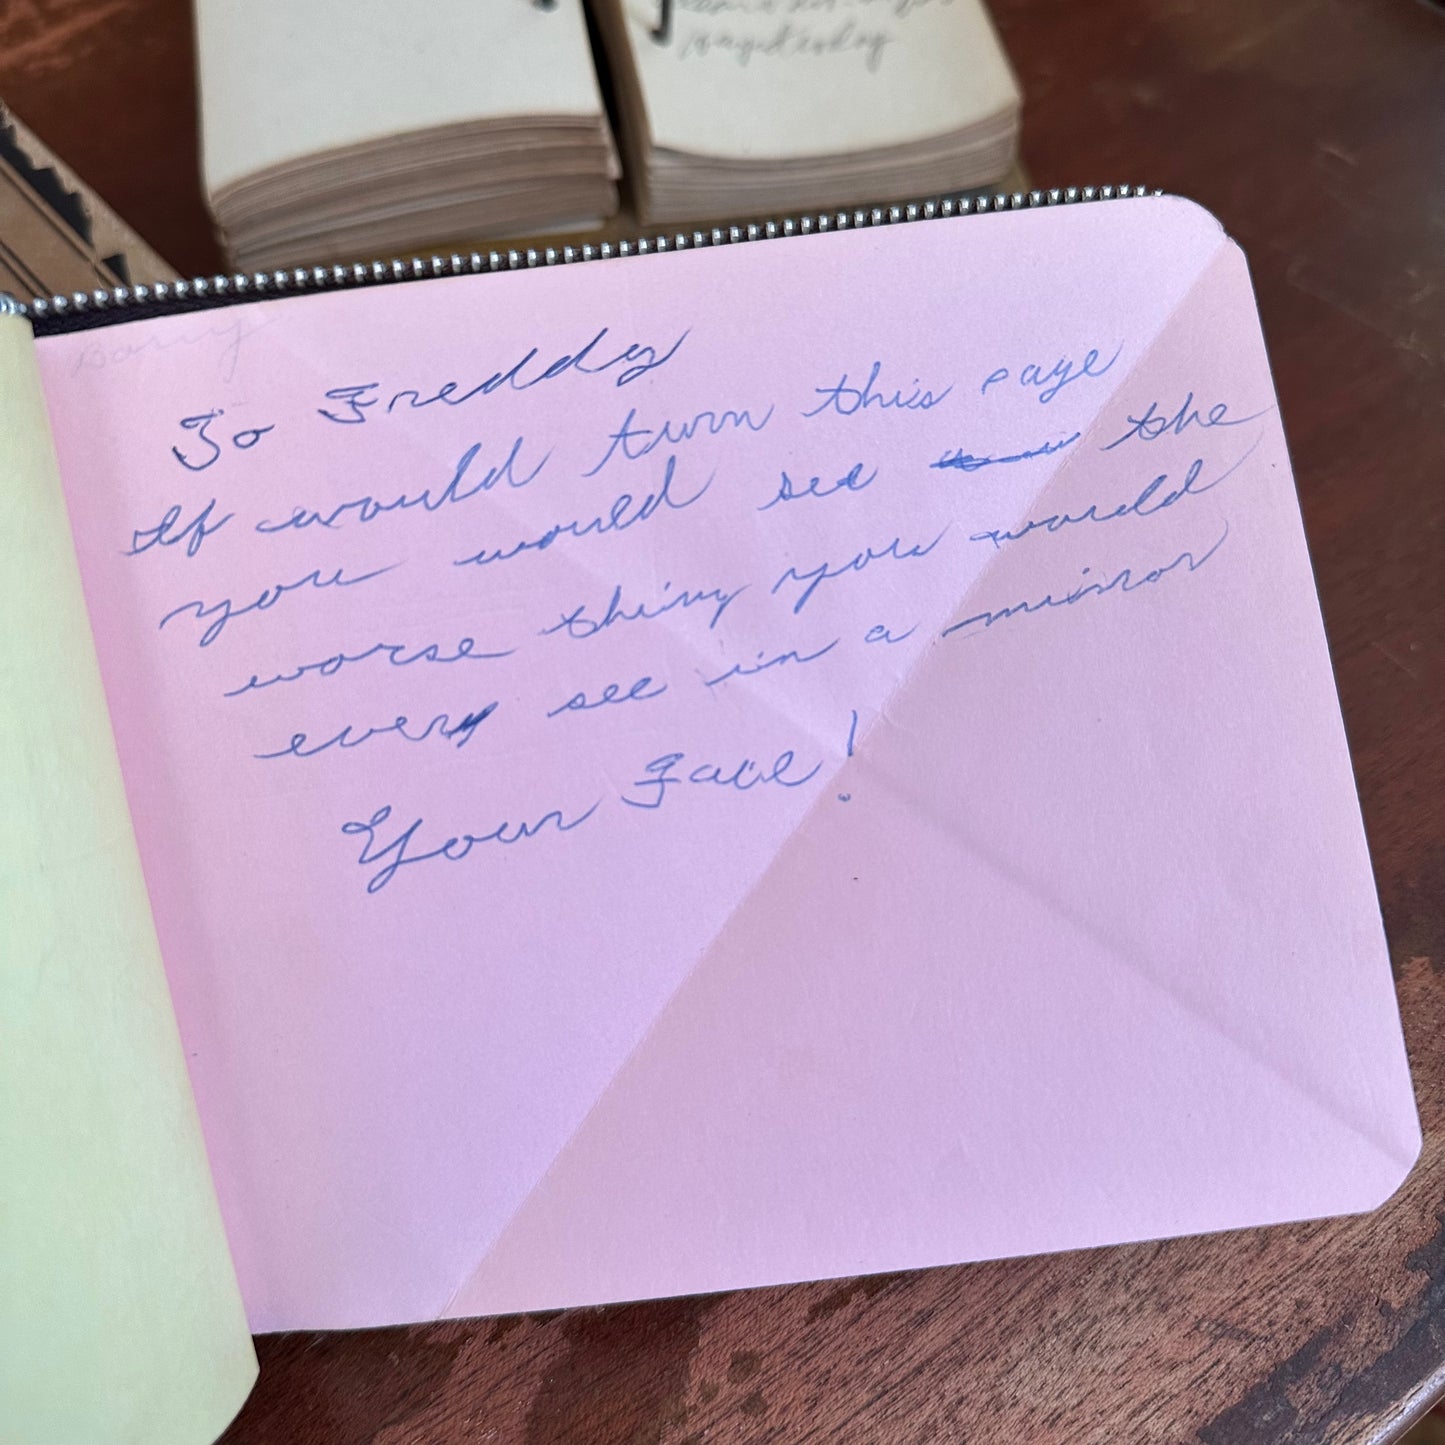 page today
Barry
To Freddy
If would turn this page
you would see the
worse thing you would
every see in a mirror
Your Face!